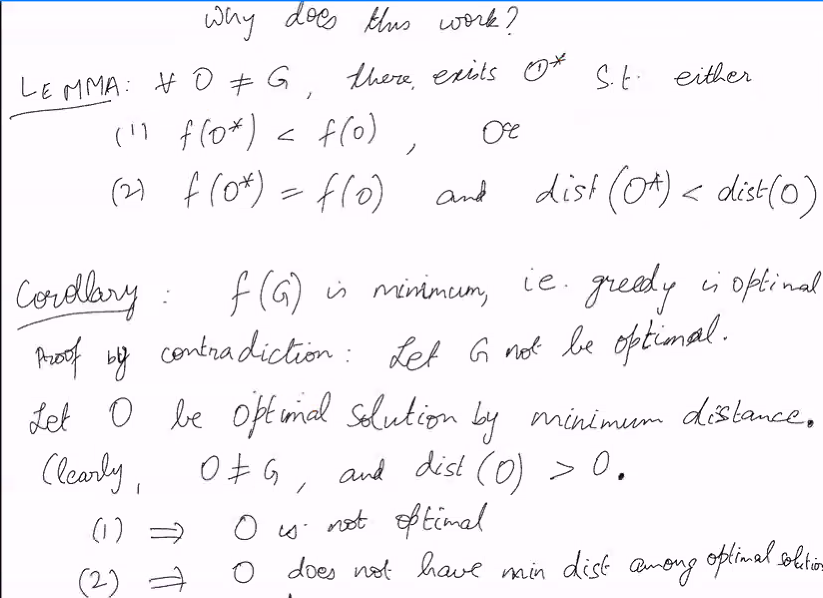 Why does this work?
LEMMA: ∀ O ≠ G, there exists O* s.t. either
(1) f(O*) < f(O), OR
(2) f(O*) = f(O) and dist(O*) < dist(O)
Corollary: f(G) is minimum, i.e. greedy is optimal
Proof by contradiction: Let G not be optimal.
Let O be optimal solution by minimum distance.
Clearly, O ≠ G, and dist(O) > 0.
(1) ⇒ O is not optimal
(2) ⇒ O does not have min dist among optimal solution